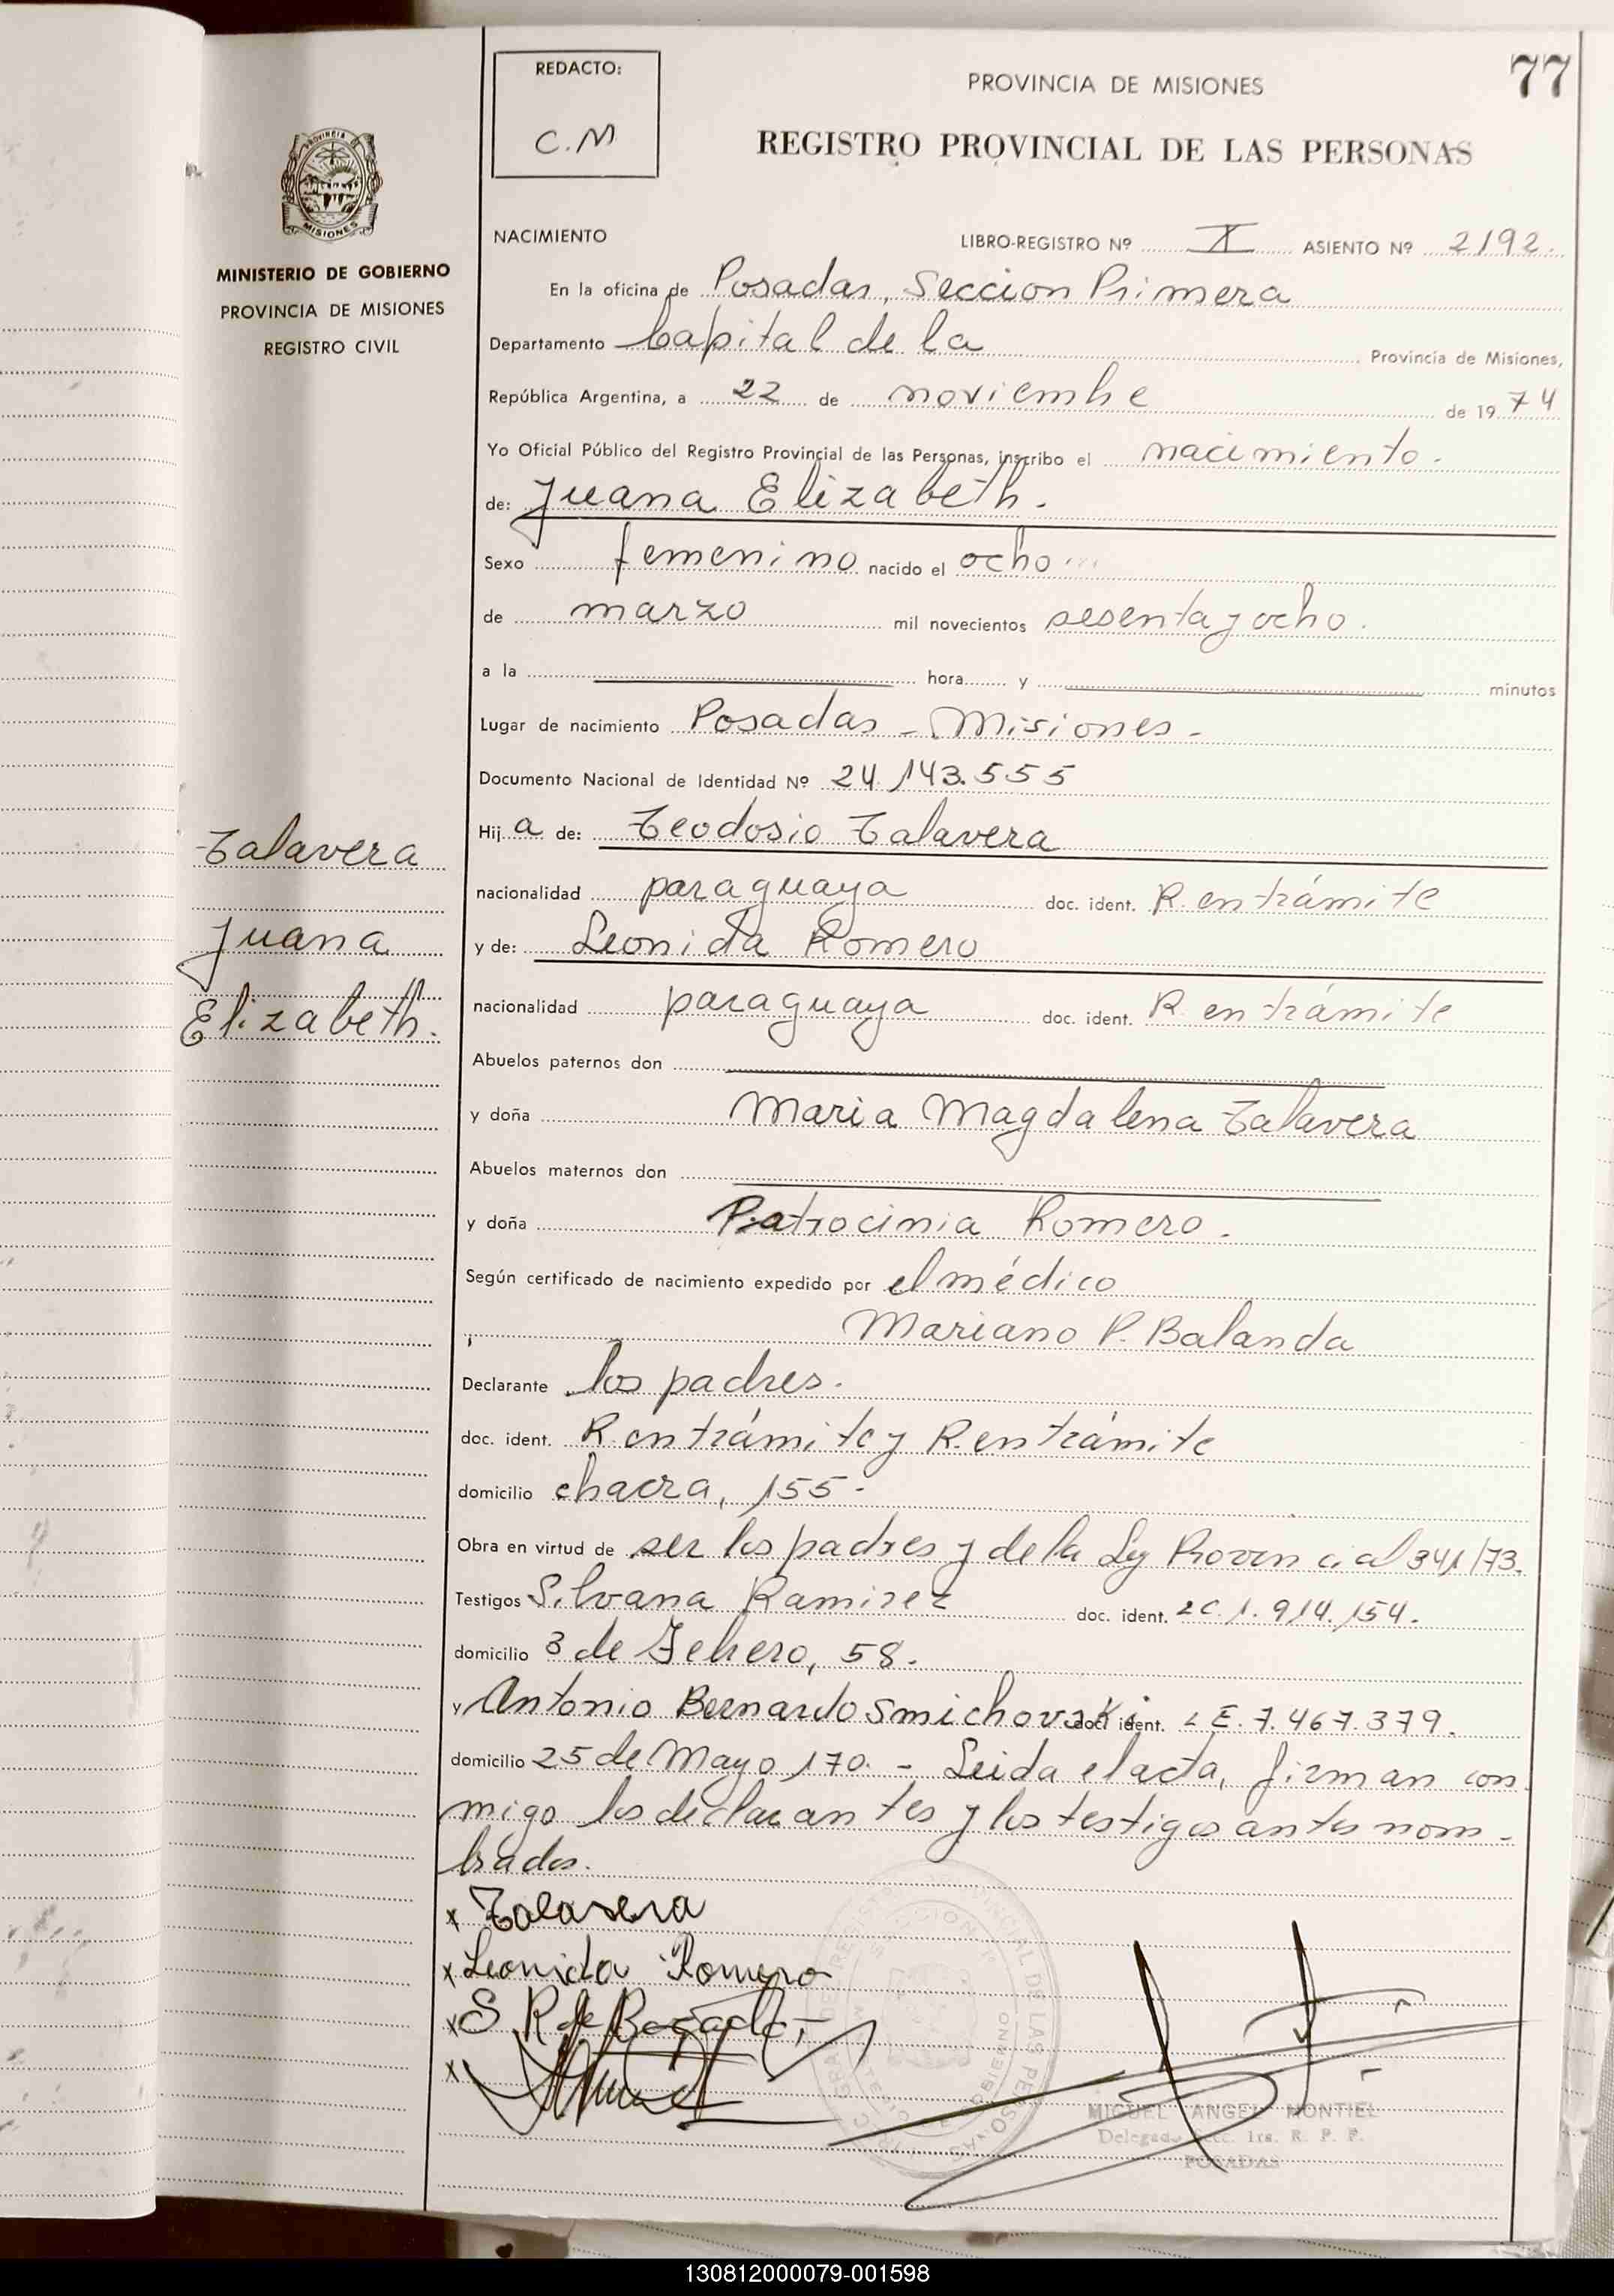 77
REDACTO:
C.M
PROVINCIA DE MISIONES
REGISTRO PROVINCIAL DE LAS PERSONAS
MISIONES
MINISTERIO DE GOBIERNO
PROVINCIA DE MISIONES
REGISTRO CIVIL
Talavera
Juana
Elizabeth.
NACIMIENTO LIBRO-REGISTRO Nº X ASIENTO Nº 2192.
En la oficina de Posadas, Seccion Primera
Departamento Capital de la Provincia de Misiones,
República Argentina, a 22 de noviembre de 19 74
Yo Oficial Público del Registro Provincial de las Personas, inscribo el nacimiento.
de: Juana Elizabeth.
Sexo femenino nacido el ocho
de marzo mil novecientos sesenta y ocho.
a la hora y minutos
Lugar de nacimiento Posadas - Misiones -
Documento Nacional de Identidad Nº 24.143.555
Hij a de: Teodosio Talavera
nacionalidad paraguaya doc. ident. R. en trámite
y de: Leonida Romero
nacionalidad paraguaya doc. ident. R. en trámite
Abuelos paternos don
y doña Maria Magdalena Talavera
Abuelos maternos don
y doña Patrocinia Romero.
Según certificado de nacimiento expedido por el médico
Mariano P. Balanda
Declarante los padres.
doc. ident. R. en trámite y R. en trámite
domicilio chacra, 155.
Obra en virtud de ser los padres y de la Ley Provincial 341/73.
Testigos Silvana Ramirez doc. ident. 2C.1.914.154.
domicilio 3 de Febrero, 58.
y Antonio Bernardo Smichovski doc. ident. LE.7.467.379.
domicilio 25 de Mayo 170. - Leida el acta, firman con
migo los declarantes y los testigos antes nom-
brados.
x Talavera
x Leonida Romero
x S R de Bogado
x
MIGUEL ANGEL MONTIEL
Delegado Secc. 1ra. R. P. P.
POSADAS
130812000079-001598